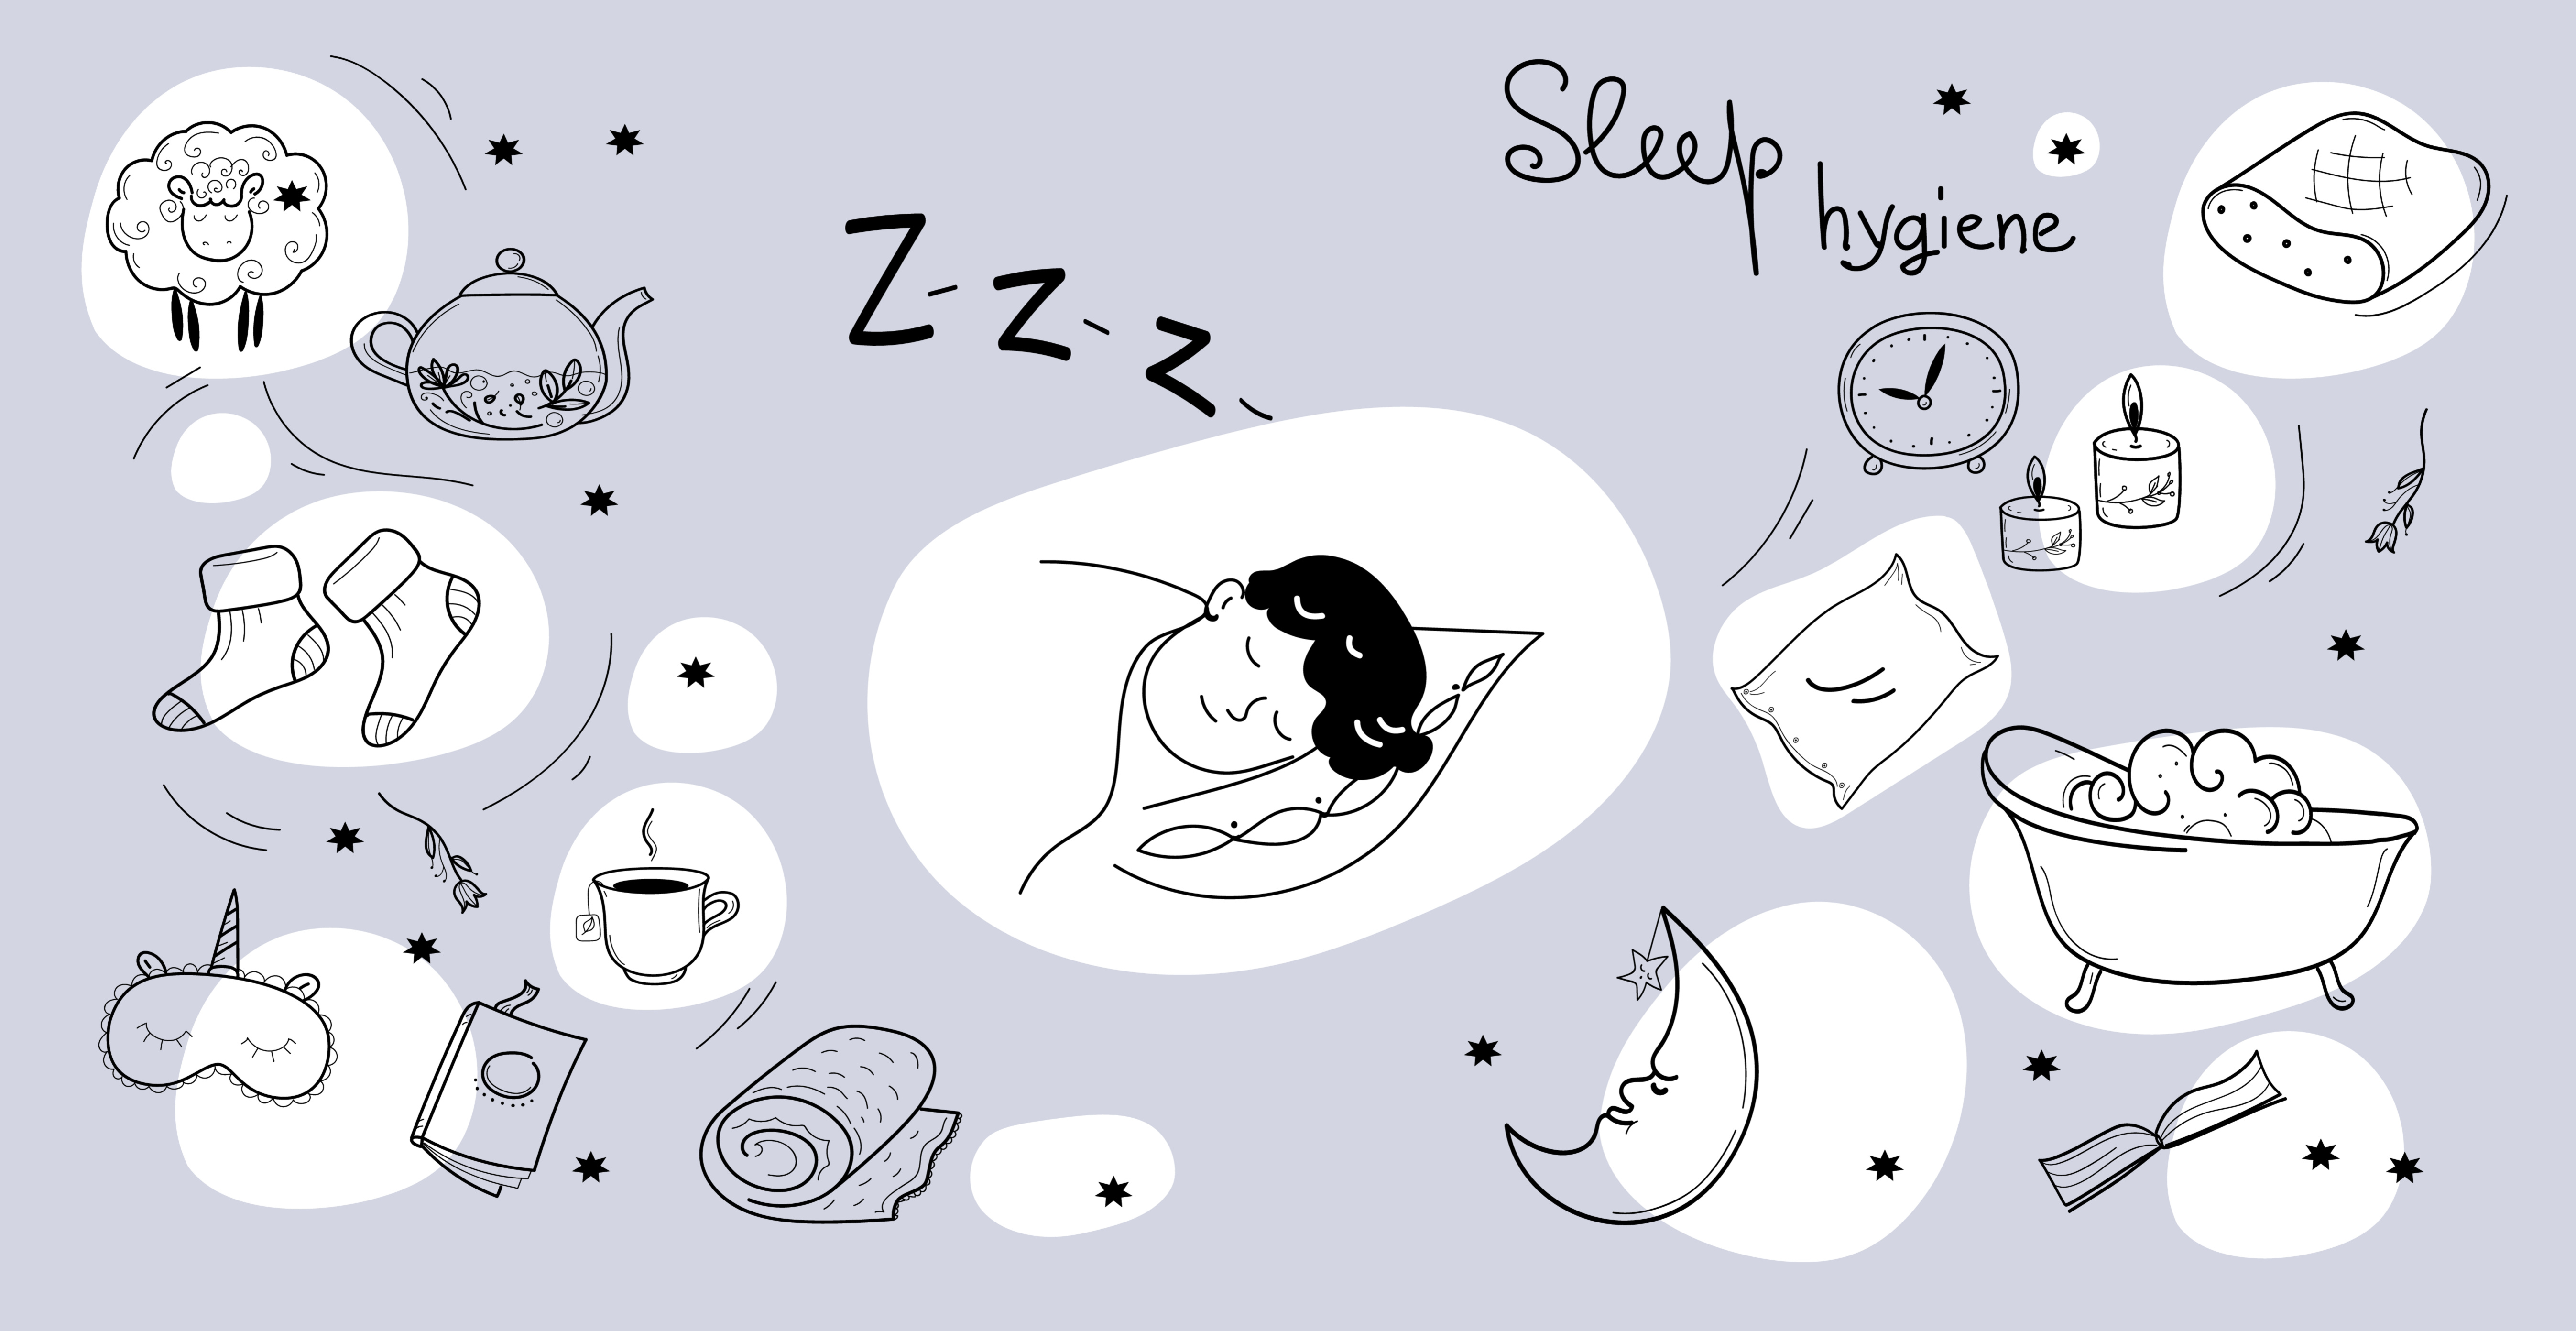 Sleep
hygiene
Z-z-z